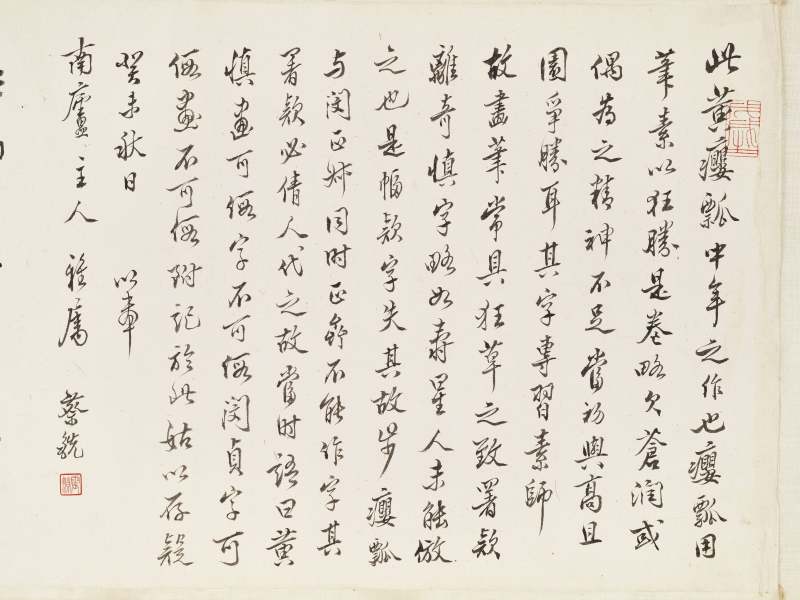 此黄癭瓢中年之作也癭瓢用
筆素以狂勝是卷略欠蒼潤或
偶為之精神不足當初興高且
圖爭勝耳其字專習素師
故畫筆常具狂草之致署欵
離奇慎字略如壽星人未能倣
之也是幅欵字失其故步癭瓢
与閔正齋同时正齋不能作字其
署欵必倩人代之故當时語曰黄
慎畫可伪字不可伪閔貞字可
伪畫不可伪附記於此姑以存疑
癸未秋日 以奉
南廬主人 雅屬 蔡銑